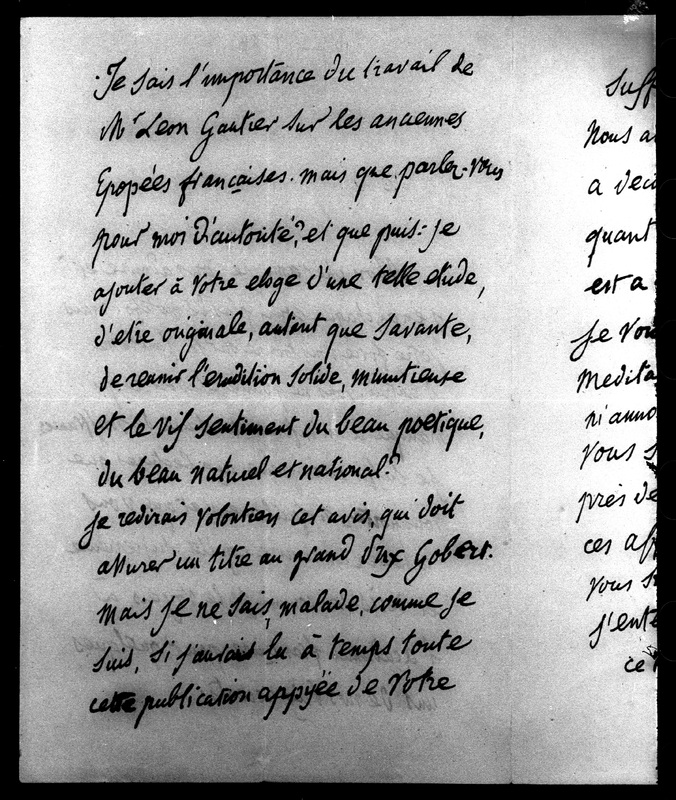 Je sais l'importance du travail de
Mr Leon Gautier sur les anciennes
Epopées françaises. mais que parlez-vous
pour moi d'autorité? et que puis-je
ajouter à votre eloge d'une telle etude,
d'etre originale, autant que savante,
de reunir l'erudition solide, minutieuse
et le vif sentiment du beau poetique,
du beau naturel et national?
je redirais volontiers cet avis, qui doit
assurer un titre au grand Prix Gobert.
mais je ne sais, malade, comme je
suis, si j'aurais lu à temps toute
cette publication appyée de votre
suff
Nous a
a deci
quant
est a
je vou
medita
ni anno
vous s
près de
ces aff
vous s
j'ente
ce